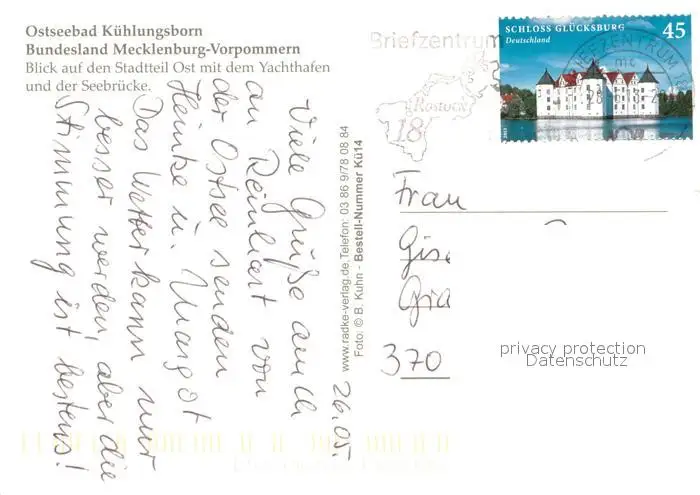 Ostseebad Kühlungsborn
Bundesland Mecklenburg-Vorpommern
Blick auf den Stadtteil Ost mit dem Yachthafen
und der Seebrücke.
Briefzentrum
Rostock
18
SCHLOSS GLÜCKSBURG
Deutschland
45
2013
BRIEFZENTRUM
mc
26.05.
Viele Grüße auch
an Reinhart von
der Ostsee senden
Heinke u. Margot
Das Wetter kann nur
besser werden, aber die
Stimmung ist bestens!
www.radke-verlag.de, Telefon: 03 86 9/78 08 84
Foto: © B. Kuhn - Bestell-Nummer Kü14
Frau
Gis
Gra
370
privacy protection
Datenschutz